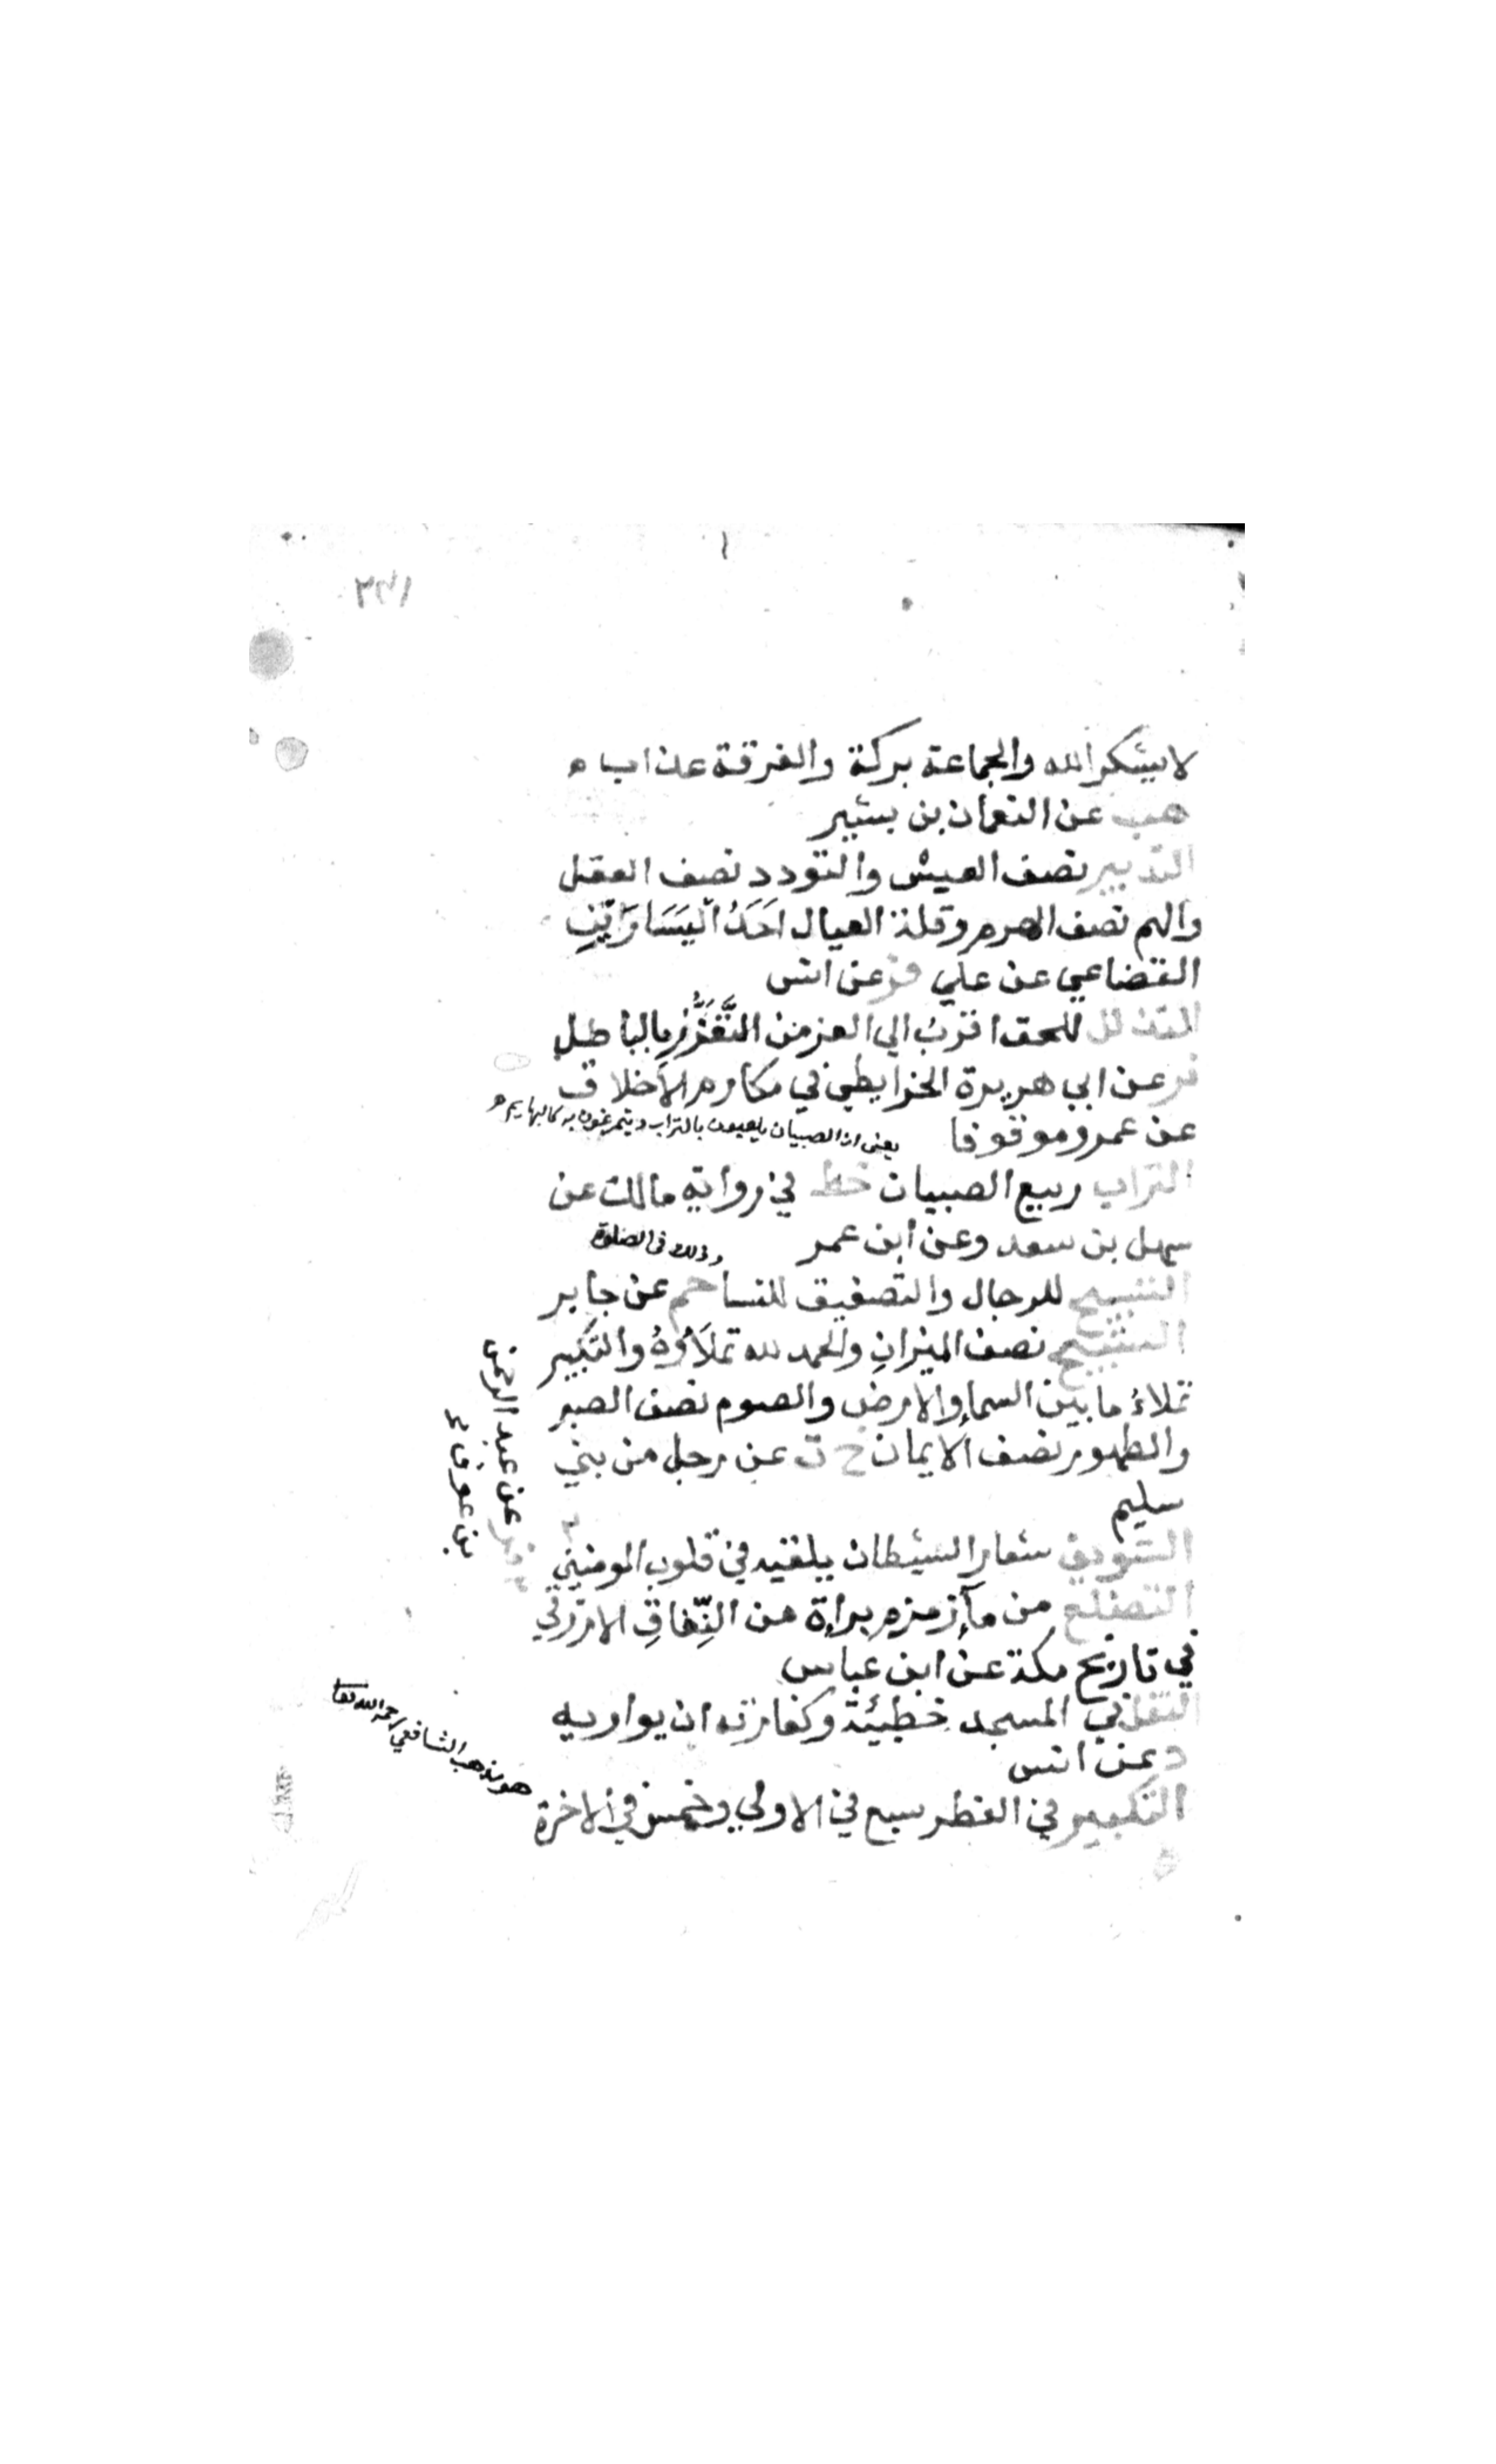 ٢٣١
لايشكر الله والجماعة بركة والفرقة عذاب ه
هب عن النعمان بن بشير
التدبير نصف العيش والتودد نصف العقل
والهم نصف الهرم وقلة العيال اَحَدُ اليَسَارَيْنِ
القضاعي عن علي فر عن انس
التذلل للحق اقربُ الي العز من التَّعَزُّزِ بالباطل
فر عن ابي هريرة الخرايطي في مكارم الأخلاق
عن عمر وموقوفا
يعني ان الصبيان يلعبون بالتراب ويتمرغون به كالبهايم ه
التراب ربيع الصبيان خط في رواية مالك عن
سهل بن سعد وعن ابن عمر
وذلك في الصلوة
التسبيح للرجال والتصفيق للنسا حم عن جابر
التسبيح نصف الميزانِ والحمد لله تملأوُهُ والتكبير
تملاءُ ما بين السماء والارض والصوم نصف الصبر
والطهور نصف الايمان ح ت عن رجل من بني
سليم
التسويف شعار الشيطان يلقيه في قلوب المومنين
عن عبد الرحمن
بن عوف
التضلع من مآء زمزم براءة من النِّفاقِ الازرقي
في تاريخ مكة عن ابن عباس
التفل في المسجد خطيئة وكفارته ان يواريه
د عن انس
التكبير في الفطر سبع في الاولي وخمس في الاخرة
هو مذهب الشافعي رحمه الله تعا